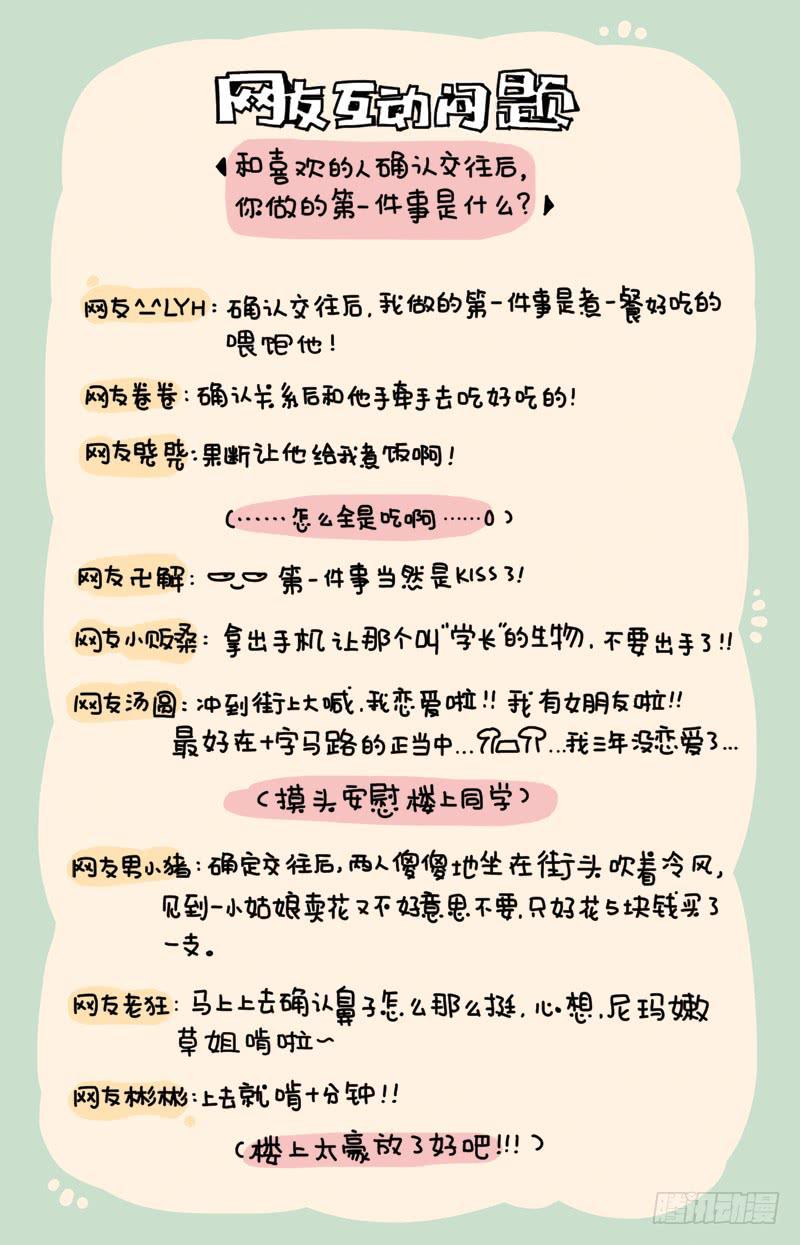 网友互动问题
和喜欢的人确认交往后,
你做的第一件事是什么?
网友^_^LYH:确认交往后,我做的第一件事是煮一餐好吃的
喂饱他!
网友卷卷:确认关系后和他手牵手去吃好吃的!
网友甏甏:果断让他给我煮饭啊!
(……怎么全是吃啊……o)
网友卍解: 第一件事当然是KISS了!
网友小贩桑:拿出手机让那个叫"学长"的生物,不要出手了!!
网友汤圆:冲到街上大喊,我恋爱啦!!我有女朋友啦!!
最好在十字马路的正当中......我三年没恋爱了...
(摸头安慰楼上同学)
网友男小猪:确定交往后,两人傻傻地坐在街头吹着冷风,
见到一小姑娘卖花又不好意思不要,只好花5块钱买了
一支。
网友老狂:马上上去确认鼻子怎么那么挺,心想,尼玛嫩
草姐啃啦~
网友彬彬:上去就啃十分钟!!
(楼上太豪放了好吧!!!)
腾讯动漫